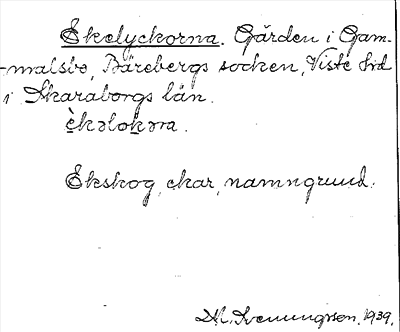 Ekelyckorna. Gården i Gam-
-malsbo, Bärebergs socken, Viste hd
i Skaraborgs län.
èkəlokəra.
Ekskog, ekar, namngrund.
1939.